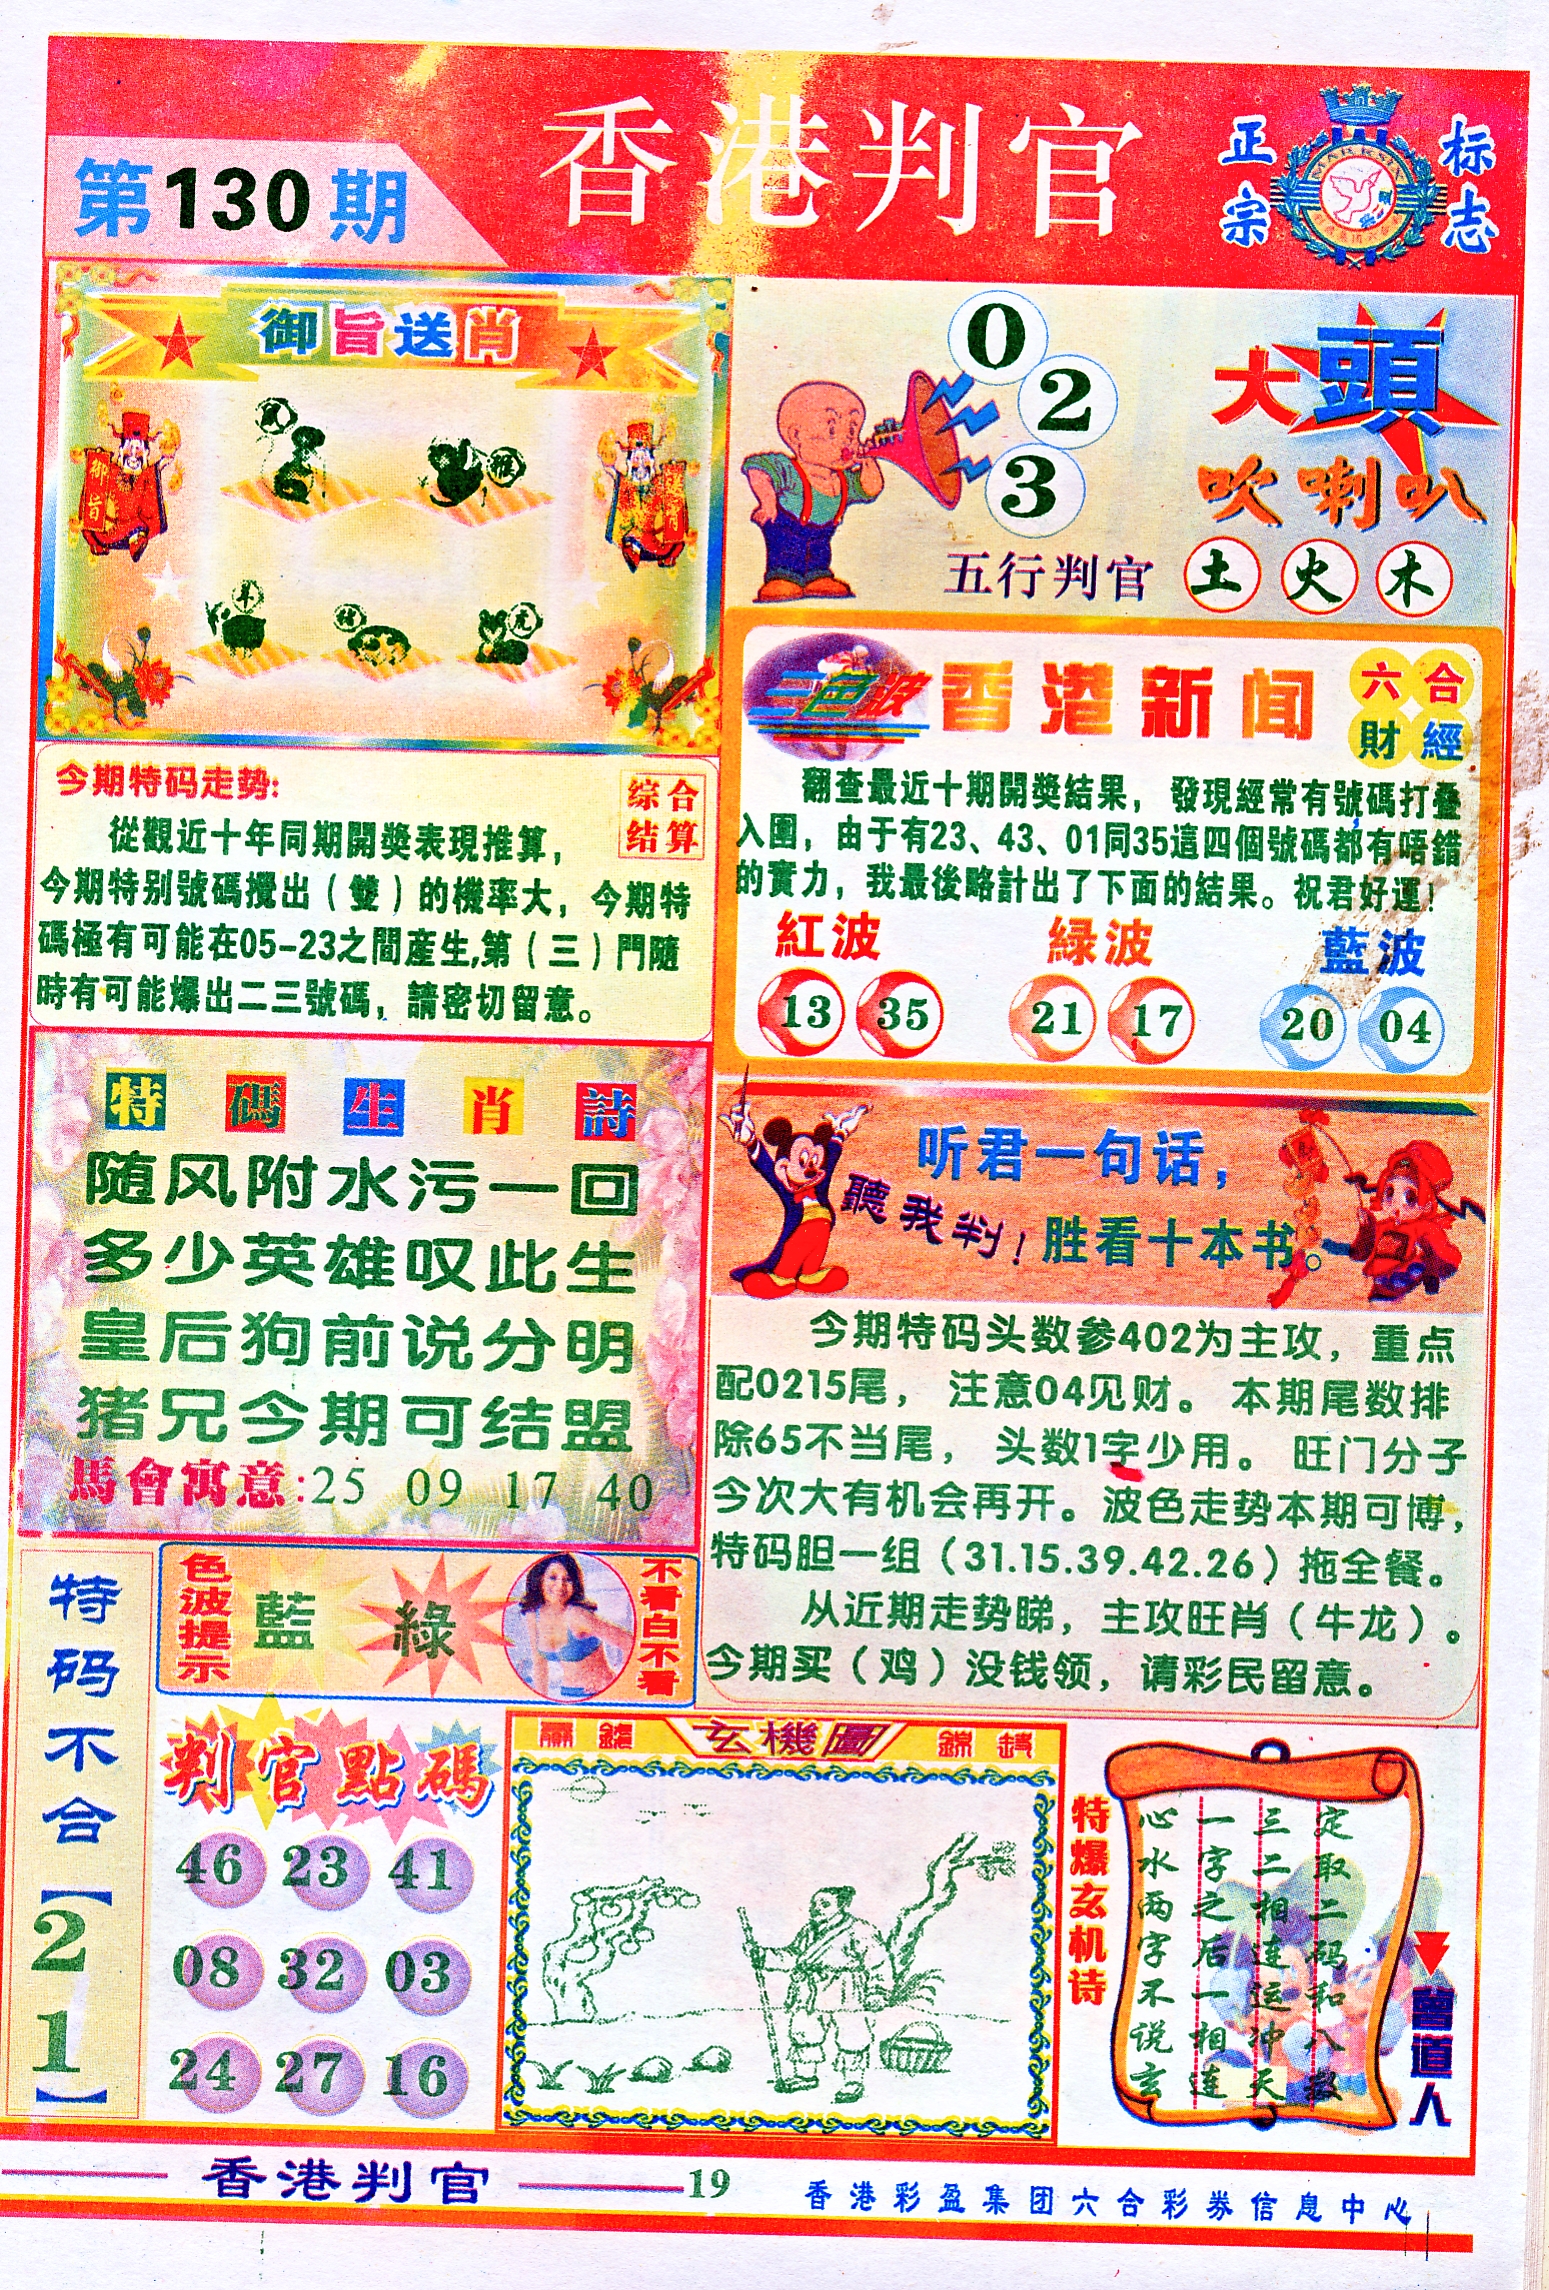 香港判官
第130期
正宗
标志
御旨送肖
鼠
猴
羊
猪
虎
御旨
0
2
3
大頭
吹喇叭
五行判官 土 火 木
三色波
香港新闻
六合
財經
翻查最近十期開奬結果，發現經常有號碼打叠
入圍，由于有23、43、01同35這四個號碼都有唔錯
的實力，我最後略計出了下面的結果。祝君好運！
紅波 緑波 藍波
13 35 21 17 20 04
今期特码走势:
综合
结算
從觀近十年同期開奬表現推算，
今期特别號碼攪出（雙）的機率大，今期特
碼極有可能在05-23之間産生,第（三）門隨
時有可能爆出二三號碼，請密切留意。
特碼生肖詩
随风附水污一回
多少英雄叹此生
皇后狗前说分明
猪兄今期可结盟
馬會寓意:25 09 17 40
听君一句话，
聽我判！
胜看十本书。
今期特码头数参402为主攻，重点
配0215尾，注意04见财。本期尾数排
除65不当尾，头数1字少用。旺门分子
今次大有机会再开。波色走势本期可博，
特码胆一组（31.15.39.42.26）拖全餐。
从近期走势睇，主攻旺肖（牛龙）。
今期买（鸡）没钱领，请彩民留意。
特码不合【21】
色波提示
藍 綠
不看白不看
判官點碼
46 23 41
08 32 03
24 27 16
玄機圖
特爆玄机诗
心水两字不说玄
一字之后一相连
三二相连运冲天
定取二码和八数
曾道人
香港判官
19
香港彩盈集团六合彩券信息中心